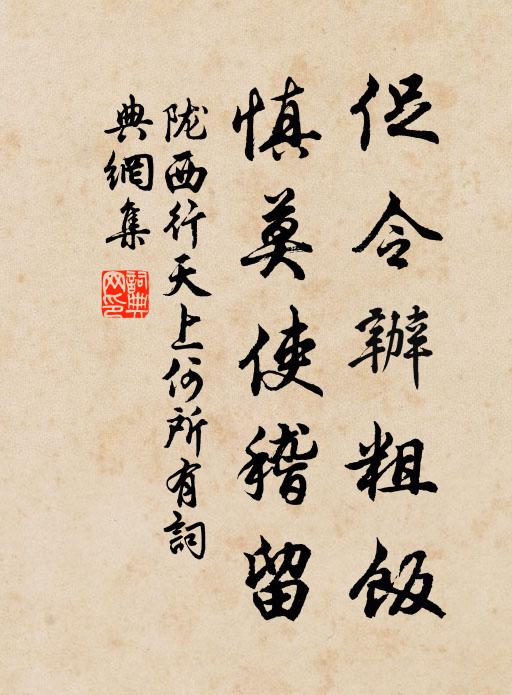 促令辦粗飯
慎莫使稽留
陇西行天上何所有詞
典網集
詞典
网印